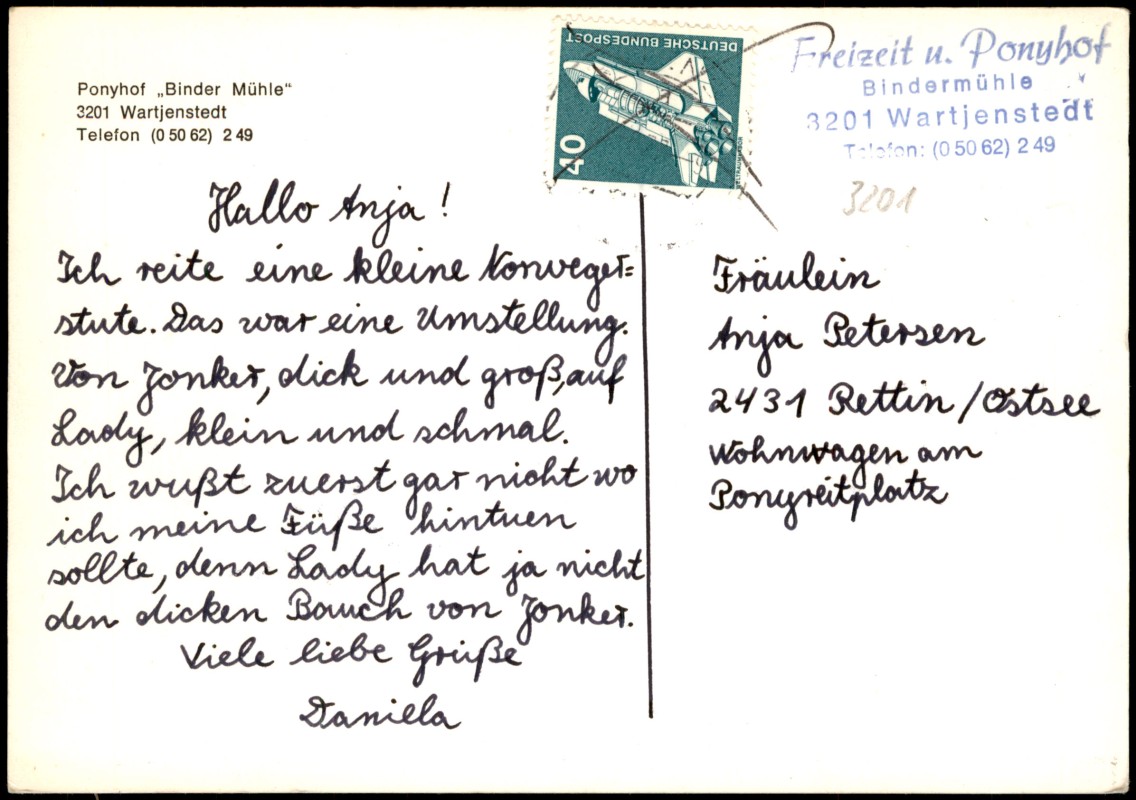 Ponyhof „Binder Mühle“
3201 Wartjenstedt
Telefon (0 50 62) 2 49
DEUTSCHE BUNDESPOST
40
Freizeit u. Ponyhof
Bindermühle
3201 Wartjenstedt
Telefon: (0 50 62) 2 49
3201
Hallo Anja!
Ich reite eine kleine Norweger=
stute. Das war eine Umstellung.
Von Jonker, dick und groß, auf
Lady, klein und schmal.
Ich wußt zuerst gar nicht wo
ich meine Füße hintuen
sollte, denn Lady hat ja nicht
den dicken Bauch von Jonker.
Viele liebe Grüße
Daniela
Fräulein
Anja Petersen
2431 Rettin/Ostsee
Wohnwagen am
Ponyreitplatz